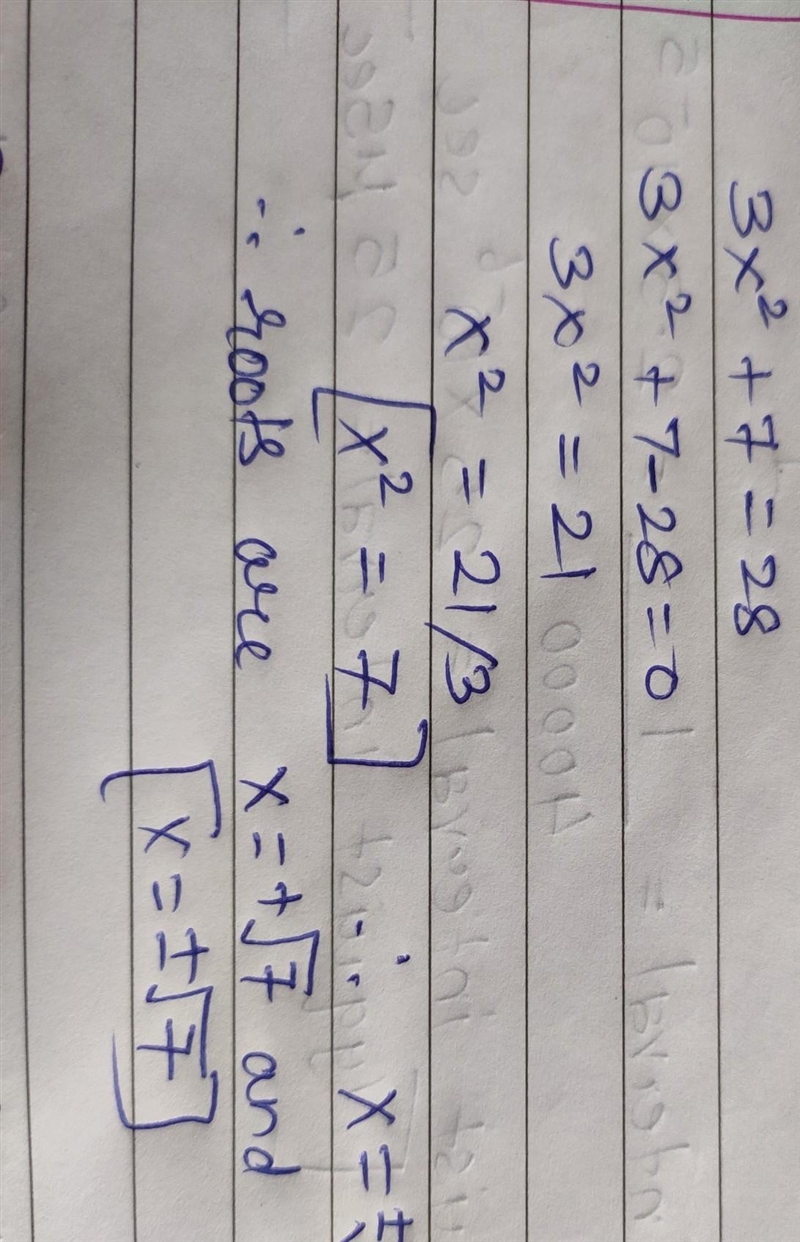 3x² + 7 = 28
3x² + 7 - 28 = 0
3x² = 21
x² = 21/3
x² = 7 ∴ x = ±
∴ roots are x = +√7 and
x = ±√7